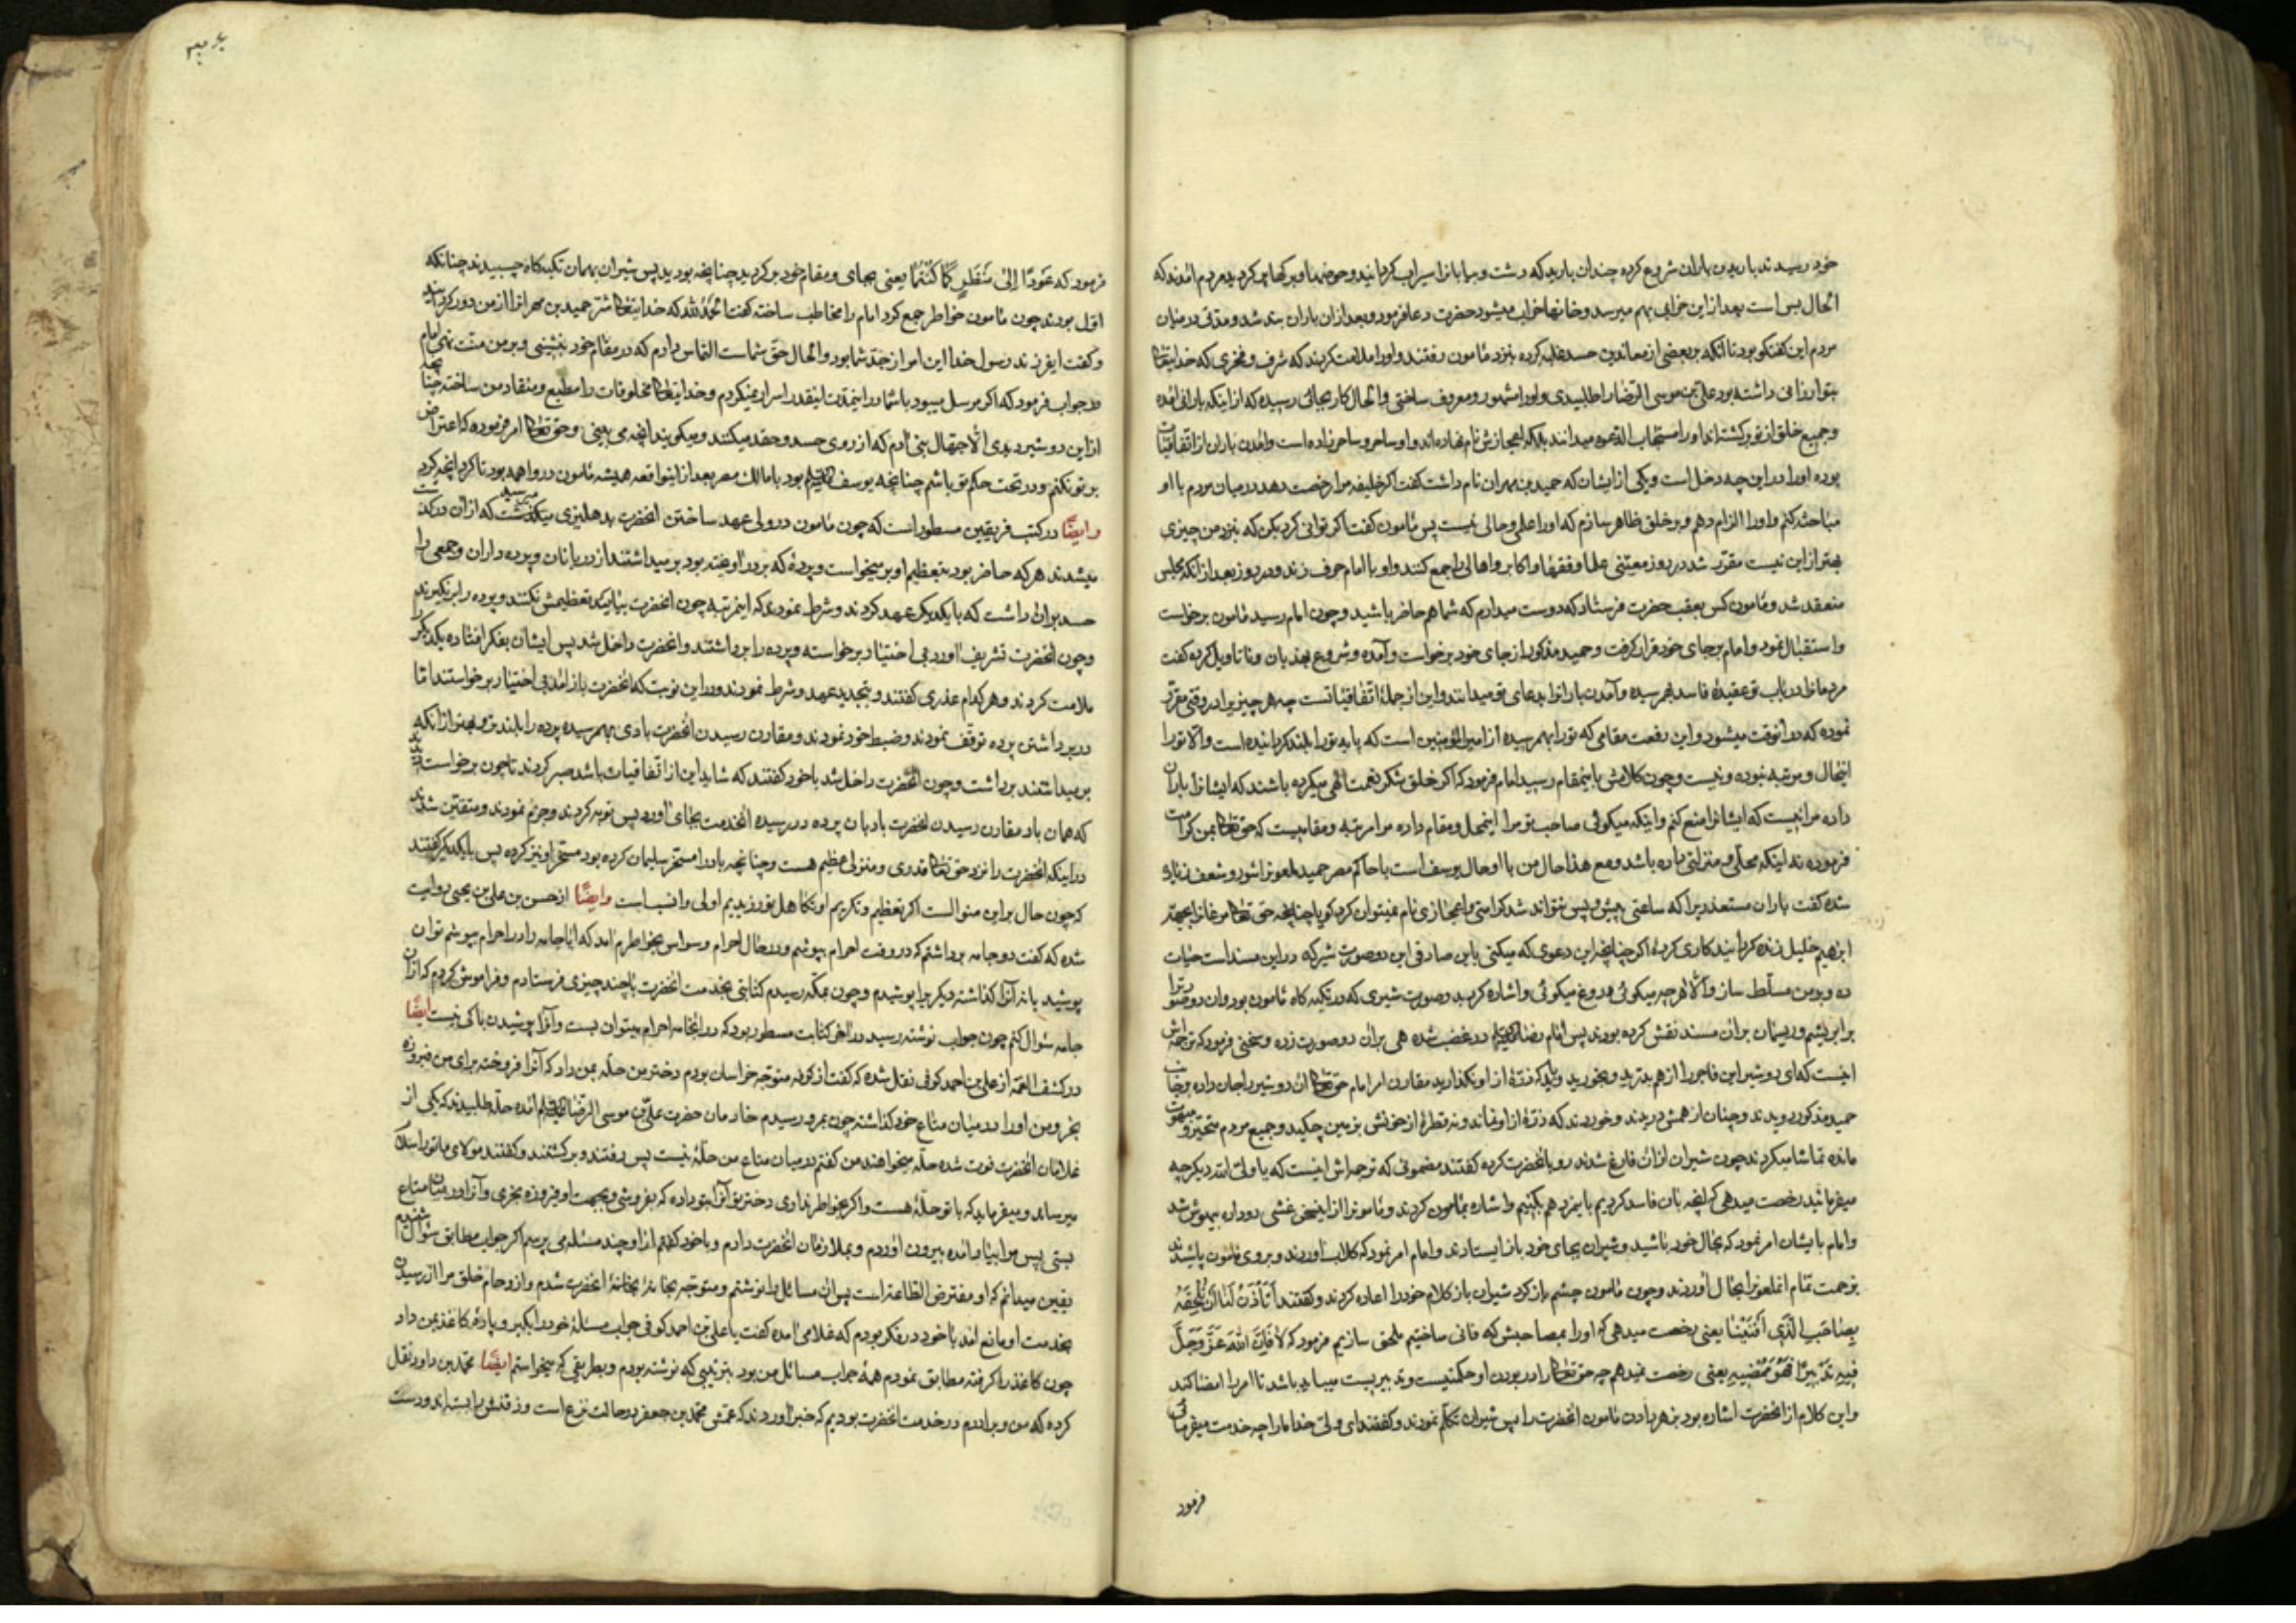 خود رسیدند باریدن باران شروع کرده چندان بارید که دشت و بیابانرا سیراب گردانید و حوضها و برکها پر کردید مردم آمدند که
الحال بس است بعد از این خرابی بهم میرسد و خانها خراب میشود حضرت دعا فرمود و بعد ازان باران بند شد و مدتی در میان
مردم این گفتگو بود تا آنکه بر بعضی از معاندین حسد غلبه کرده بنزد مأمون رفتند و او را ملامت کردند که شرف و فخری که خدایتعالی
بتو ارزانی داشته بود علی بن موسی الرضا را طلبیدی و او را مشهور و معروف ساختی و الحال کار بجائی رسیده که از اینکه بارانی آمده
و جمیع خلق از تو برگشته‌اند او را مستجاب الدعوه میدانند بلکه اعجازش نام نهاده‌اند و او ساحر و ساحر زاده است و آمدن باران از اتفاقیات
بوده او را در این چه دخل است و یکی از ایشان که حمید بن مهران نام داشت گفت اگر خلیفه مرا رخصت دهد در میان مردم با او
مباحثه کنم و او را الزام دهم و بر خلق ظاهر سازم که او را علمی و حالی نیست پس مأمون گفت اگر توانی کرد بکن که نزد من چیزی
بهتر از این نیست مقرر شد در روز معینی علما و فقها و اکابر و اهالی را جمع کنند و او با امام حرف زند و در روز بعد از آنکه مجلس
منعقد شد و مأمون کس بعقب حضرت فرستاد که دوست میدارم که شما هم حاضر باشید و چون امام رسید مأمون برخواست
و استقبال نمود و امام بر جای خود قرار گرفت و حمید مذکور از جای خود برخواست و آمده و شروع بهذیان و تاویل کرده گفت
مردمانرا در باب تو عقیدهٔ فاسد بهم رسیده و آمدن بارانرا بدعای تو میدانند و این از جملهٔ اتفاقیاتست چه هر چیز یرا در وقتی مقرر
نموده که در آنوقت میشود و این رفعت مقامی که تو را بهم رسیده از امیر المؤمنین است که پایه تو را بلند گردانیده است و الا تو را
اینحال و مرتبه نبوده و نیست و چون کلامش باینمقام رسید امام فرمود که اگر خلق شکر نعمت الهی میکرده باشند که ایشانرا باران
داده مرا نیست که ایشانرا منع کنم و اینکه میگوئی صاحب تو مرا اینمحل و مقام داده مرا مرتبه و مقامیست که حق تعالی بمن کرامت
فرموده نه اینکه محلی و منزلتی داده باشد و مع هذا حال من با او حال یوسف است با حاکم مصر حمید ملعونرا شور و شعف زیاد
شده گفت باران مستعد ریرا که ساعتی پیش و پس نتواند شد کرامتی و اعجازی نام نمیتوان کرد گویا چنانچه حق تعالی مرغانرا بجهة
ابرهیم خلیل زنده گردانید کاری کرده اگر چنانچه این دعوی که میکنی باین صادقی این دو صورت شیر که در این مسند است حیات
ده و بر من مسلط ساز و الا هر چه میگوئی دروغ میگوئی و اشاره کرد بدو صورت شیری که در تکیه گاه مأمون بود و ان دو صورترا
برابریشم و ریسمان بران مسند نقش کرده بودند پس امام رضا علیه السلام در غضب شده هی بران دو صورت زده و سخنی فرمود که ترجمه اش
اینست که ای دو شیر این فاجر را از هم بدرید و بخورید و باید که ذرهٔ از او نگذارید مقارن امر امام حق تعالی ان دو شیر را جان داده و بجانب
حمید مذکور دویدند و چنان از همش دریدند و خوردند که ذرهٔ از او نماند و نه قطرهٔ از خونش بزمین چکید و جمیع مردم متحیر و مبهوت
مانده تماشا میکردند چون شیران از ان فارغ شدند رو بانحضرت کرده گفتند مضمونی که ترجمه‌اش اینست که یا ولی الله دیگر چه
میفرمائید رخصت میدهی که آنچه بان فاسد کردیم باین مرد هم بکنیم و اشاره بمأمون کردند و مأمونرا از اینسخن غشی رو داده بیهوش شد
و امام بایشان امر نمود که بحال خود باشید و شیران بجای خود باز ایستادند و امام امر نمود که گلاب آوردند و بروی مأمون پاشیدند
بزحمت تمام انملعونرا بحال آوردند و چون مأمون چشم باز کرد شیران باز کلام خود را اعاده کردند و گفتند اَتَأْذَنْ لَنَا اَنْ نُلْحِقَهُ
بِصَاحِبِهِ الَّذِی اَفْنَیْنَا یعنی رخصت میدهی که او را بمصاحبش که فانی ساختیم ملحق سازیم فرمود که لا فَاِنَّ اللّهَ عَزَّ وَجَلَّ
فِیهِ تَدْبِیرًا فَهُوَ مُمْضِیهِ یعنی رخصت نمیدهم چه حق تعالی را در بودن او حکمتیست و تدبیریست میباید باشد تا امر را امضا کند
و این کلام از انحضرت اشاره بود بزهر دادن مأمون انحضرت را پس شیران تکلم نمودند و گفتند ای ولی خدا ما را چه خدمت میفرمائی
فرمود
فرمود که عَوْدًا اِلیٰ کَمَا کُنْتُمَا یعنی بجای و مقام خود برگردید چنانچه بودید پس شیران بهمان تکیه گاه چسبیدند چنانکه
اول بودند چون مأمون خواطر جمع کرد امام را مخاطب ساخته گفت الحمد لله که خدایتعالی شر حمید بن مهرانرا از من دور گردانید
و گفت ایفرزند رسول خدا این امر از جد شما بود و الحال حق شماست التماس دارم که در مقام خود بنشینی و بر من منت نهی امام
در جواب فرمود که اگر مرسل میبود با شما در اینمدت اینقدر اسرار نمیکردم و خدایتعالی مخلوقات را مطیع و منقاد من ساخته چنانچه
از این دو شیر دیدی الا جهال بنی آدم که از روی حسد و حقد میکنند و میگویند آنچه می بینی و حق تعالی امر فرموده که اعتراض
بر تو نکنم و در تحت حکم تو باشم چنانچه یوسف علیه السلام بود با مالک مصر بعد از اینواقعه همیشه مأمون در واهمه بود تا کرد آنچه کرد
و ایضًا در کتب فریقین مسطور است که چون مأمون در ولی عهد ساختن انحضرت بدهلیزی میرسید میگذشت که از ان در گذشت
میشدند هر که حاضر بود بتعظیم او بر میخواست و پردهٔ که بر در آویخته بود بر میداشتند از دربانان و پرده داران و جمعی را
حسد بران داشت که با یکدیگر عهد کردند و شرط نمودند که اینمرتبه چون انحضرت بیاید تعظیمش نکنند و پرده را بر نگیرند
و چون انحضرت تشریف آورد بی اختیار برخواسته و پرده را برداشتند و انحضرت داخل شد پس ایشان بفکر افتاده یکدیگر را
ملامت کردند و هر کدام عذری گفتند و بتجدید عهد و شرط نمودند و در این نوبت که انحضرت باز آمد بی اختیار برخواستند اما
در برداشتن پرده توقف نمودند و ضبط خود نمودند و مقارن رسیدن انحضرت بادی بهمرسیده پرده را بلند تر و بهتر از آنکه
بر میداشتند برداشت و چون انحضرت داخل شد با خود گفتند که شاید این از اتفاقیات باشد صبر کردند تا چون برخواست دیدند
که همان باد مقارن رسیدن انحضرت بادبان پرده در رسیده انخدمت بجای آورد پس توبه کردند و جزم نمودند و متیقن شدند
در اینکه انحضرت را نزد حق تعالی قدری و منزلی عظیم هست و چنانچه باد را مسخر سلیمان کرده بود مسخر او نیز کرده پس با یکدیگر گفتند
که چون حال بر این منوالست اگر تعظیم و تکریم او کما هل نورزیدیم اولی و انسب است و ایضًا از حسن بن علی بن یحیی روایت
شده که گفت دو جامه برداشتم که در وقت احرام بپوشم و در حال احرام وسواس بخواطرم آمد که آیا جامه را در احرام میپوشم توان
پوشید یا نه آنرا گذاشته دیگریرا پوشیدم و چون بمکه رسیدم کتابتی بخدمت انحضرت با چند چیزی فرستادم و فراموش کردم که ازان
جامه سؤال کنم چون جواب نوشته رسید در آخر کتابت مسطور بود که در انجامه احرام میتوان بست و آنرا پوشیدن باکی نیست ایضًا
در کشف الغمه از علی بن احمد کوفی نقل شده که گفت از کوفه متوجه خراسان بودم دختر من حلّه بمن داد که آنرا فروخته برای من فیروزه
بخر و من او را در میان متاع خود گذاشته چون بمرو رسیدم خادمان حضرت علی بن موسی الرضا علیه السلام آمده حلّه طلبیدند که یکی از
غلامان انحضرت فوت شده حلّه میخواهند من گفتم در میان متاع من حلّهٔ نیست پس رفتند و برگشتند و گفتند مولای ما تو را سلام
میرساند و میفرماید که با تو حلّهٔ هست و اگر بخواطر نداری دختر تو آنرا بتو داده که بفروشی و بجهت او فیروزه بخری و آنرا در میان متاع
بستی پس مرا بیاد آمده بیرون آوردم و بملازمان انحضرت دادم و با خود گفتم از او چند مسئله می پرسم اگر جواب مطابق سؤال شنیدم
یقین میدانم که او مفترض الطاعة است پس ان مسائل را نوشتم و متوجه بخانهٔ انحضرت شدم و ازدحام خلق مرا از رسیدن
بخدمت او مانع آمد با خود در فکر بودم که غلامی آمده گفت یا علی بن احمد کوفی جواب مسئلهٔ خود را بگیر و پارهٔ کاغذ بمن داد
چون کاغذ را گرفته مطابق نمودم همهٔ جواب مسائل من بود بترتیبی که نوشته بودم و بطریقی که میخواستم ایضًا محمد بن داود نقل
کرده که من و برادرم در خدمت انحضرت بودیم که خبر آوردند که عمش محمد بن جعفر در حالت نزع است و زقنش را بسته‌اند و دست